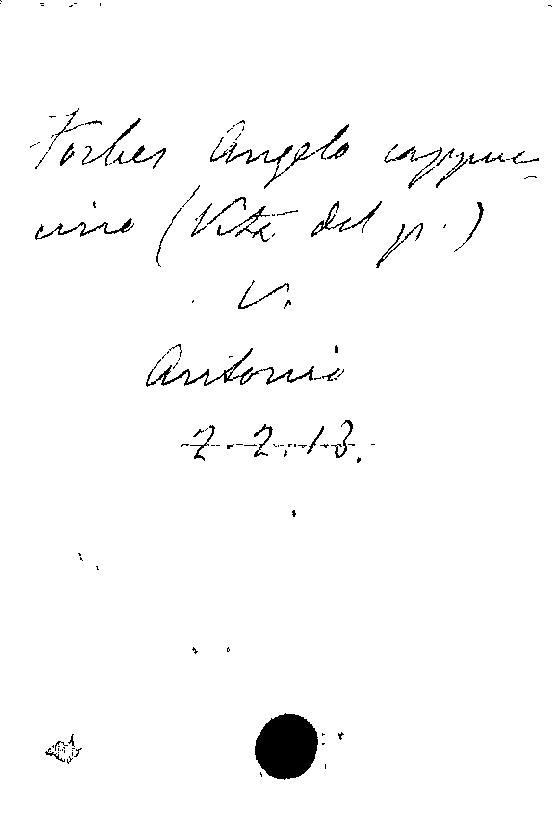 Forbes Angelo cappuc-
cino (Vita del p.)
V.
Antonio
2.2.13.